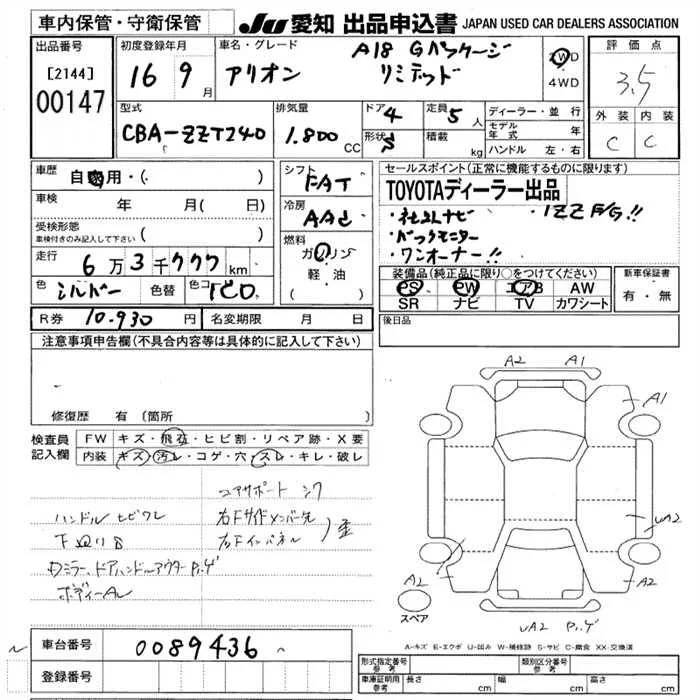 車内保管・守衛保管
JU 愛知 出品申込書 JAPAN USED CAR DEALERS ASSOCIATION
出品番号
[2144]
00147
初度登録年月
16 9月
車名・グレード
アリオン
A18 Gパッケージ
リミテッド
2WD
4WD
評価点
3.5
外装 内装
C C
型式
CBA-ZZT240
排気量
1.800 CC
ドア 4
形状 S
定員 5人
積載 kg
ディーラー・並行
モデル年式 年
ハンドル 左・右
車歴
自家用・( )
車検 年 月( 日)
受検形態
車検付きのみ記入して下さい( )
走行 6万3千777km
色 シルバー 色替 色コ 1C0
シフト
FAT
冷房
AAC
燃料
ガソリン
軽油
( )
セールスポイント(正常に機能するものに限ります)
TOYOTAディーラー出品
・社外ナビ
・バックモニター
・ワンオーナー!!
・1ZZ F/G!!
装備品(純正品に限り○をつけてください)
PS PW エアB AW
SR ナビ TV カワシート
新車保証書
有・無
R券 10.930円 名変期限 月 日
後日品
注意事項申告欄(不具合内容等は具体的に記入して下さい)
修復歴 有(箇所 )
検査員記入欄
FW キズ・飛石・ヒビ割・リペア跡・X要
内装 キズ・汚レ・コゲ・穴・スレ・キレ・破レ
コアサポート シワ
ハンドル ヒビワレ
右Fサイドメンバー先
右Fインパネル
歪
下廻りS
ドミラー、ドアハンドルアウター
ボディー
A2 A1
A1
UA2
A2
A2
スペア
UA2
A-キズ E-エクボ U-凹み W-補修跡 S-サビ C-腐食 XX-交換済
車台番号 0089436
登録番号
形式指定番号 参考
類別区分番号 参考
車庫証明用 参考 長さ cm 幅 cm 高さ cm